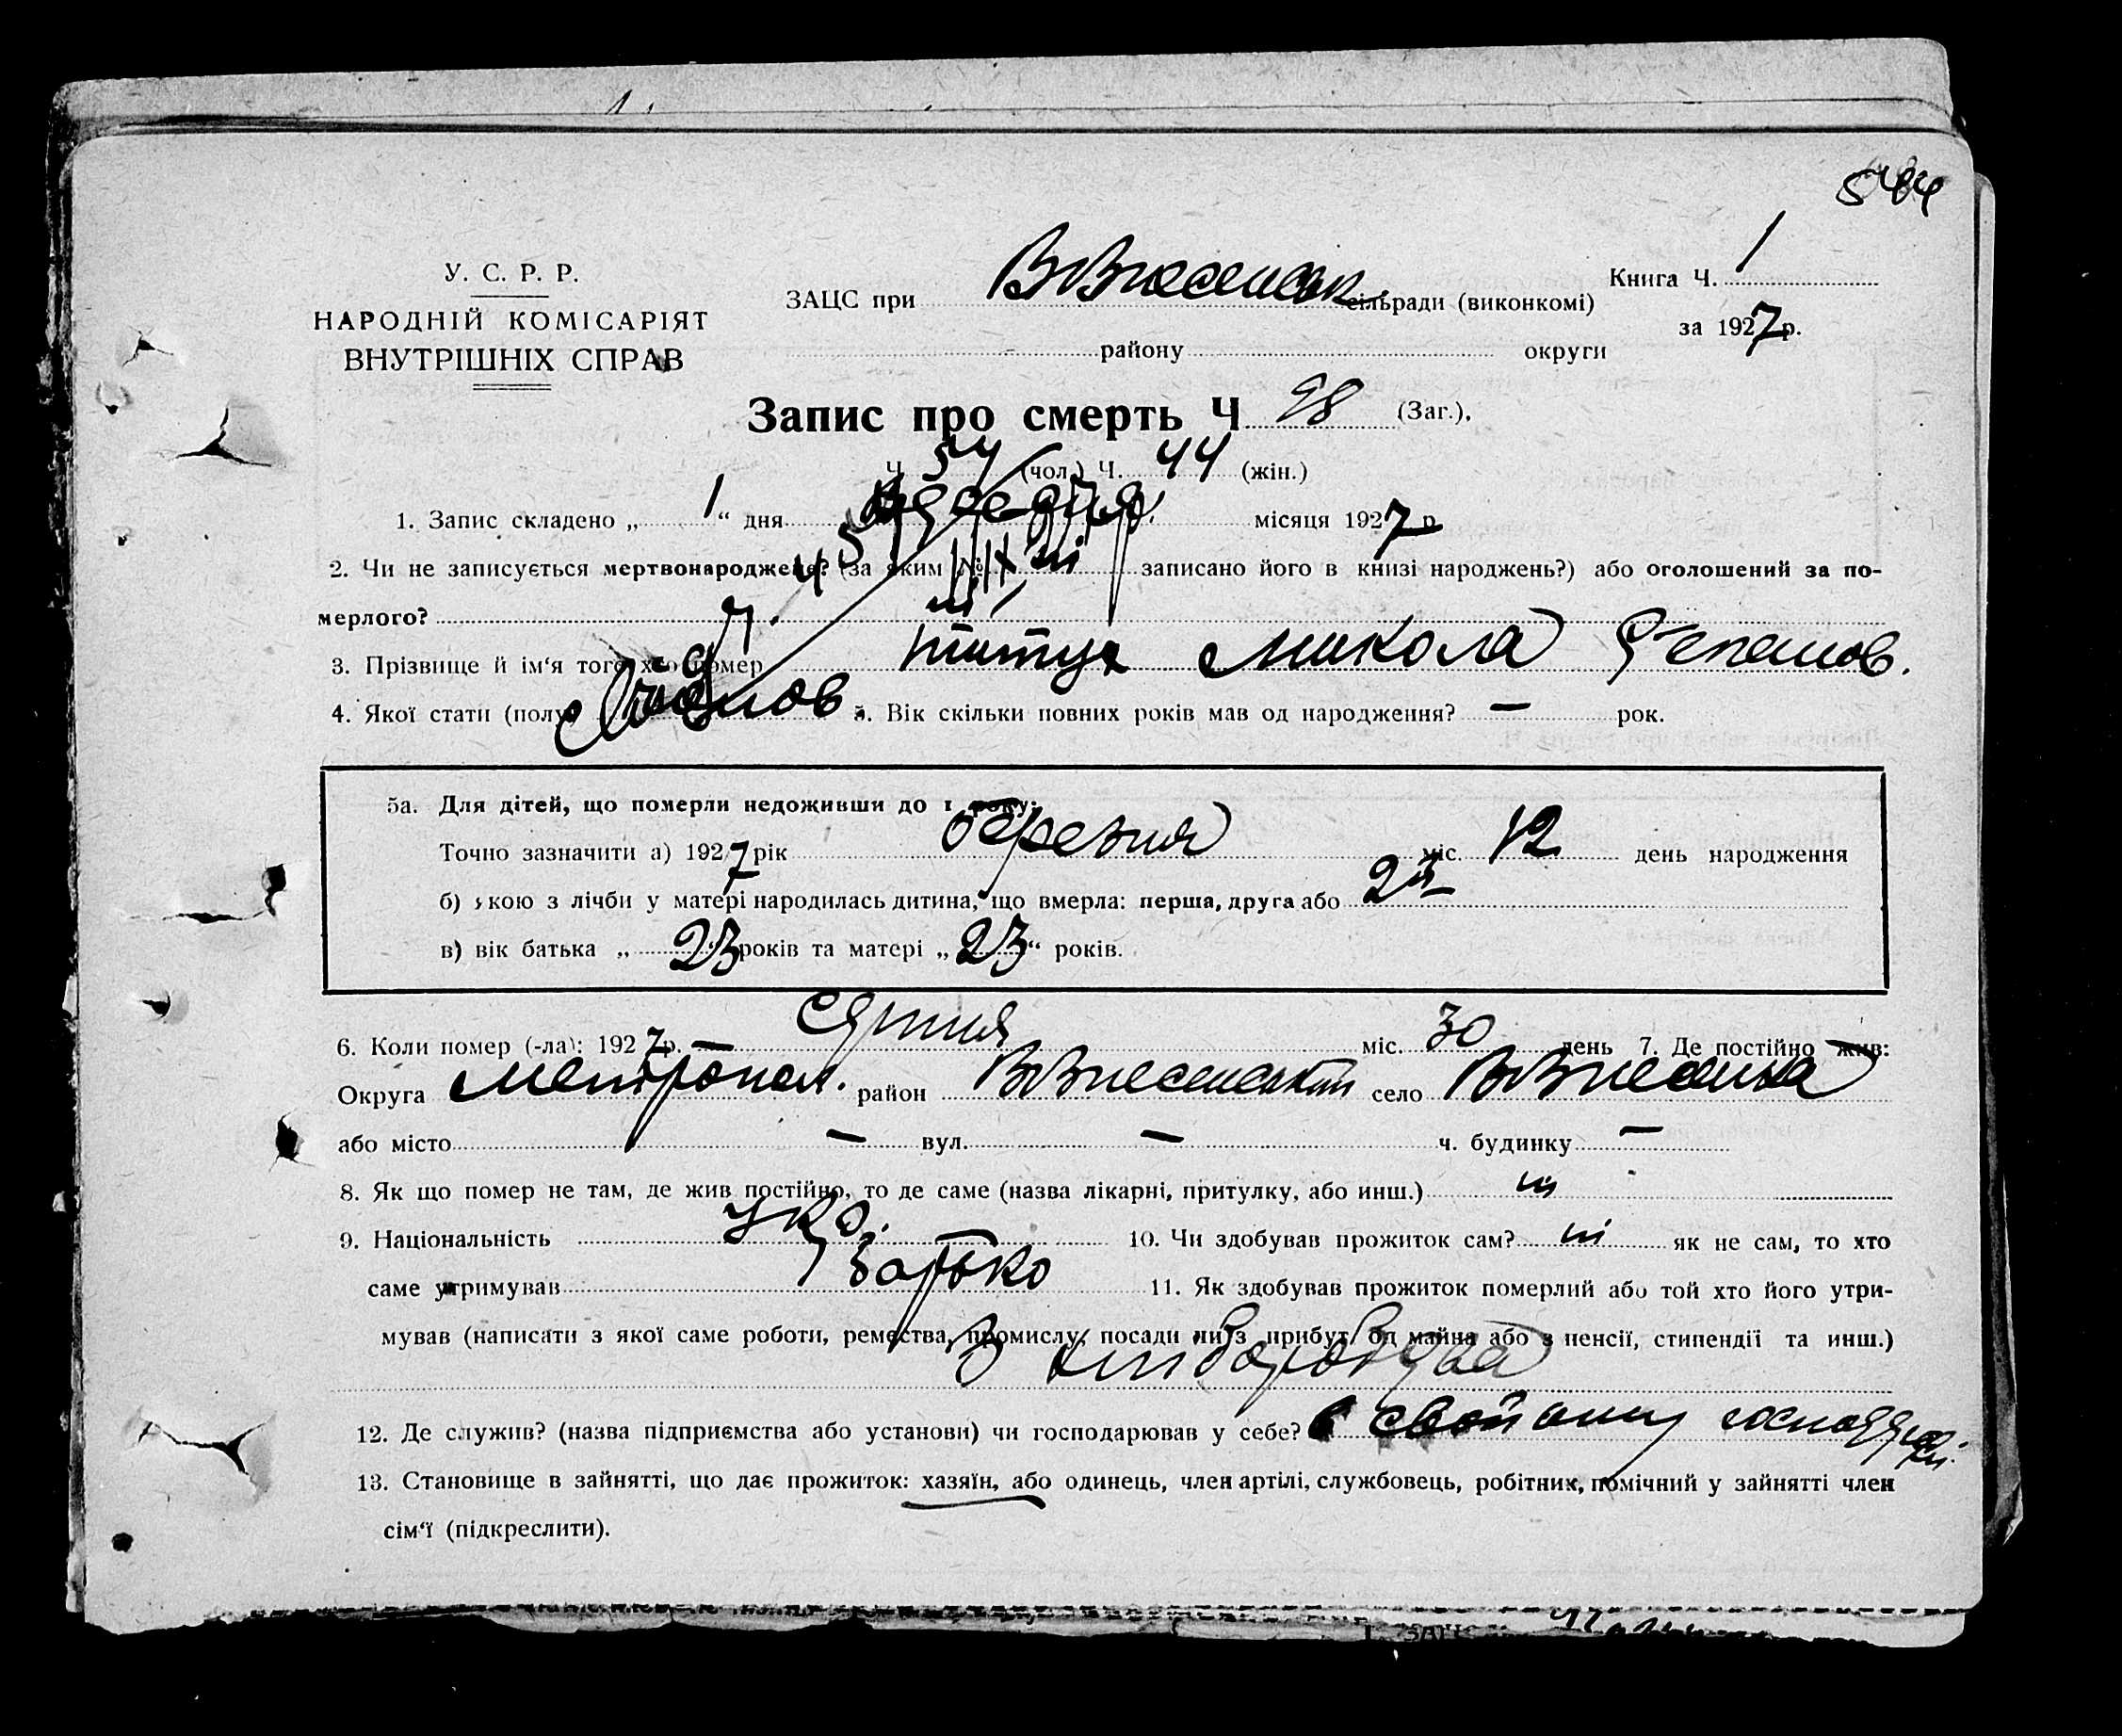 544
У. С. Р. Р.
НАРОДНІЙ КОМІСАРІЯТ
ВНУТРІШНІХ СПРАВ
ЗАЦС при сільради (виконкомі)
району округи
Книга Ч. 1
за 1927 р.
Запис про смерть Ч 98 (Заг.).
Ч. 54 (чол.) Ч. 44 (жін.)
1. Запис складено „ 1 “ дня місяця 1927 р.
2. Чи не записується мертвонароджене? (за яким № записано його в книзі народжень?) або оголошений за по-
мерлого? ні
3. Прізвище й ім‘я того, хто помер Микола Степанов.
4. Якої стати (полу) 5. Вік скільки повних років мав од народження? — рок.
5а. Для дітей, що померли недоживши до 1 року:
Точно зазначити а) 1927 рік березня міс. 12 день народження
б) якою з лічби у матері народилась дитина, що вмерла: перша, друга або 2я
в) вік батька „ 23 “ років та матері „ 23 “ років.
6. Коли помер (-ла): 1927 р. — серпня міс. 30 день 7. Де постійно жив:
Округа район село
або місто — вул. — ч. будинку —
8. Як що помер не там, де жив постійно, то де саме (назва лікарні, притулку, або инш.) ні
9. Національність укр. 10. Чи здобував прожиток сам? ні як не сам, то хто
саме утримував батько 11. Як здобував прожиток померлий або той хто його утри-
мував (написати з якої саме роботи, ремества, промислу, посади чи з прибут. од майна або з пенсії, стипендії та инш.)
З хліборобства
12. Де служив? (назва підприємства або установи) чи господарював у себе? в своїому
13. Становище в зайнятті, що дає прожиток: хазяїн, або одинець, член артілі, службовець, робітник, помічний у зайнятті член
сім‘ї (підкреслити).